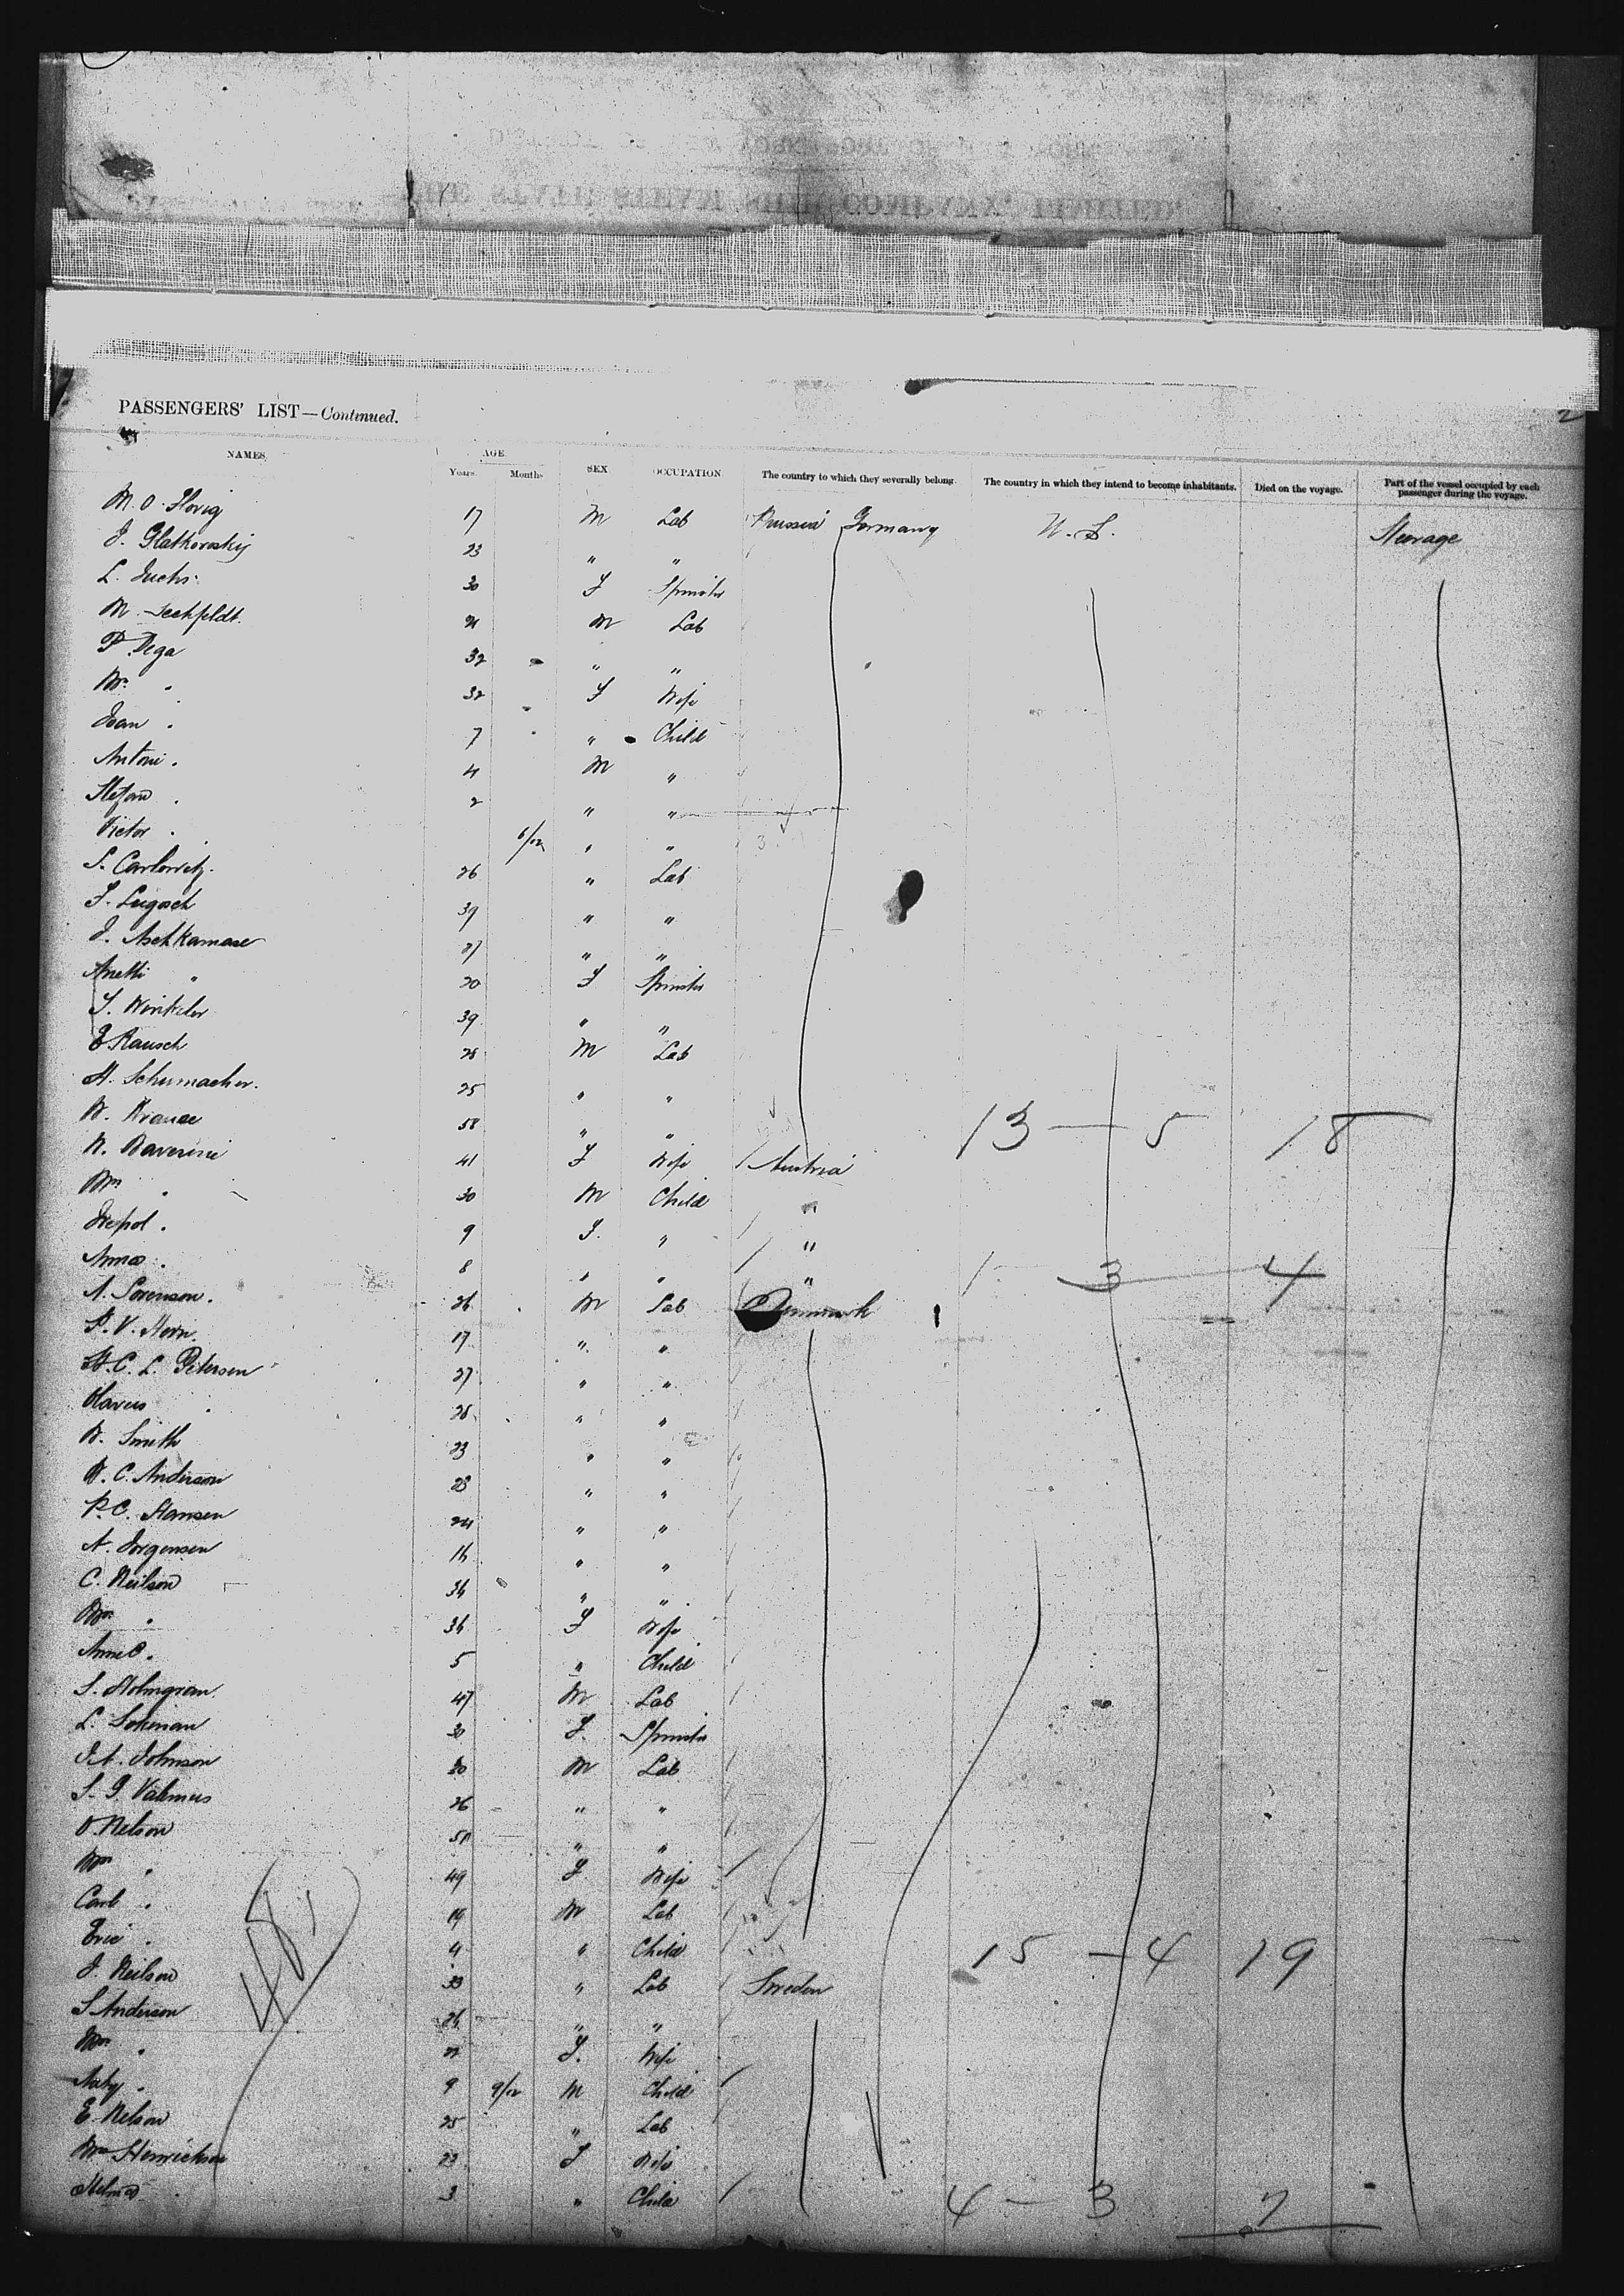 PASSENGERS' LIST—Continued.
2
NAMES. AGE SEX OCCUPATION The country to which they severally belong. The country in which they intend to become inhabitants. Died on the voyage. Part of the vessel occupied by each passenger during the voyage.
Years. Months
17 M Lab Prussia Germany U.S. Steerage
J. Glatkowskij 23 " "
L. Fuchs 30 F Spinster
M. 21 M Lab
P. Dega 32 " "
Mrs " 32 F Wife
Joan " 7 " Child
Antoni " 4 M "
Stefan " 2 " "
Victor " 6/12 " "
S. Carlowitz 26 " Lab
39 " "
J. Aschkamase 27 " "
Anetti " 20 F Spinster
S. Winkler 39 " "
E. Rausch 28 M Lab
H. Schumacher 25 " "
W. Krause 58 " " 13 — 5 18
41 F Wife Austria
Mrs " 30 M Child "
9 F. " "
Anna " 8 " " " 1 3 4
A. Sorenson 26 M Lab Denmark
P. V. Horn 17 " "
H. C. L. Petersen 27 " "
26 " "
W. Smith 23 " "
N. C. Anderson 28 " "
P. C. Hansen 24 " "
A. Jorgensen 16 " "
C. Neilson 36 " "
Mrs " 36 F Wife
Anne C. 5 " Child
S. Holmgran 47 M Lab
L. 30 F. Spinster
J. A. Johnson 30 M Lab
S. G. 26 " "
O. Nelson 51 " "
Mrs " 49 F Wife
Carl " 19 M Lab
Eric " 4 " Child 15 — 4 19
J. Neilson 33 " Lab Sweden
S Anderson 26 " "
Mrs " 22 F. Wife
9 9/12 M Child
E. Nelson 25 " Lab
Mrs Henrickson 23 F Wife
3 " Child 4 — 3 7
48